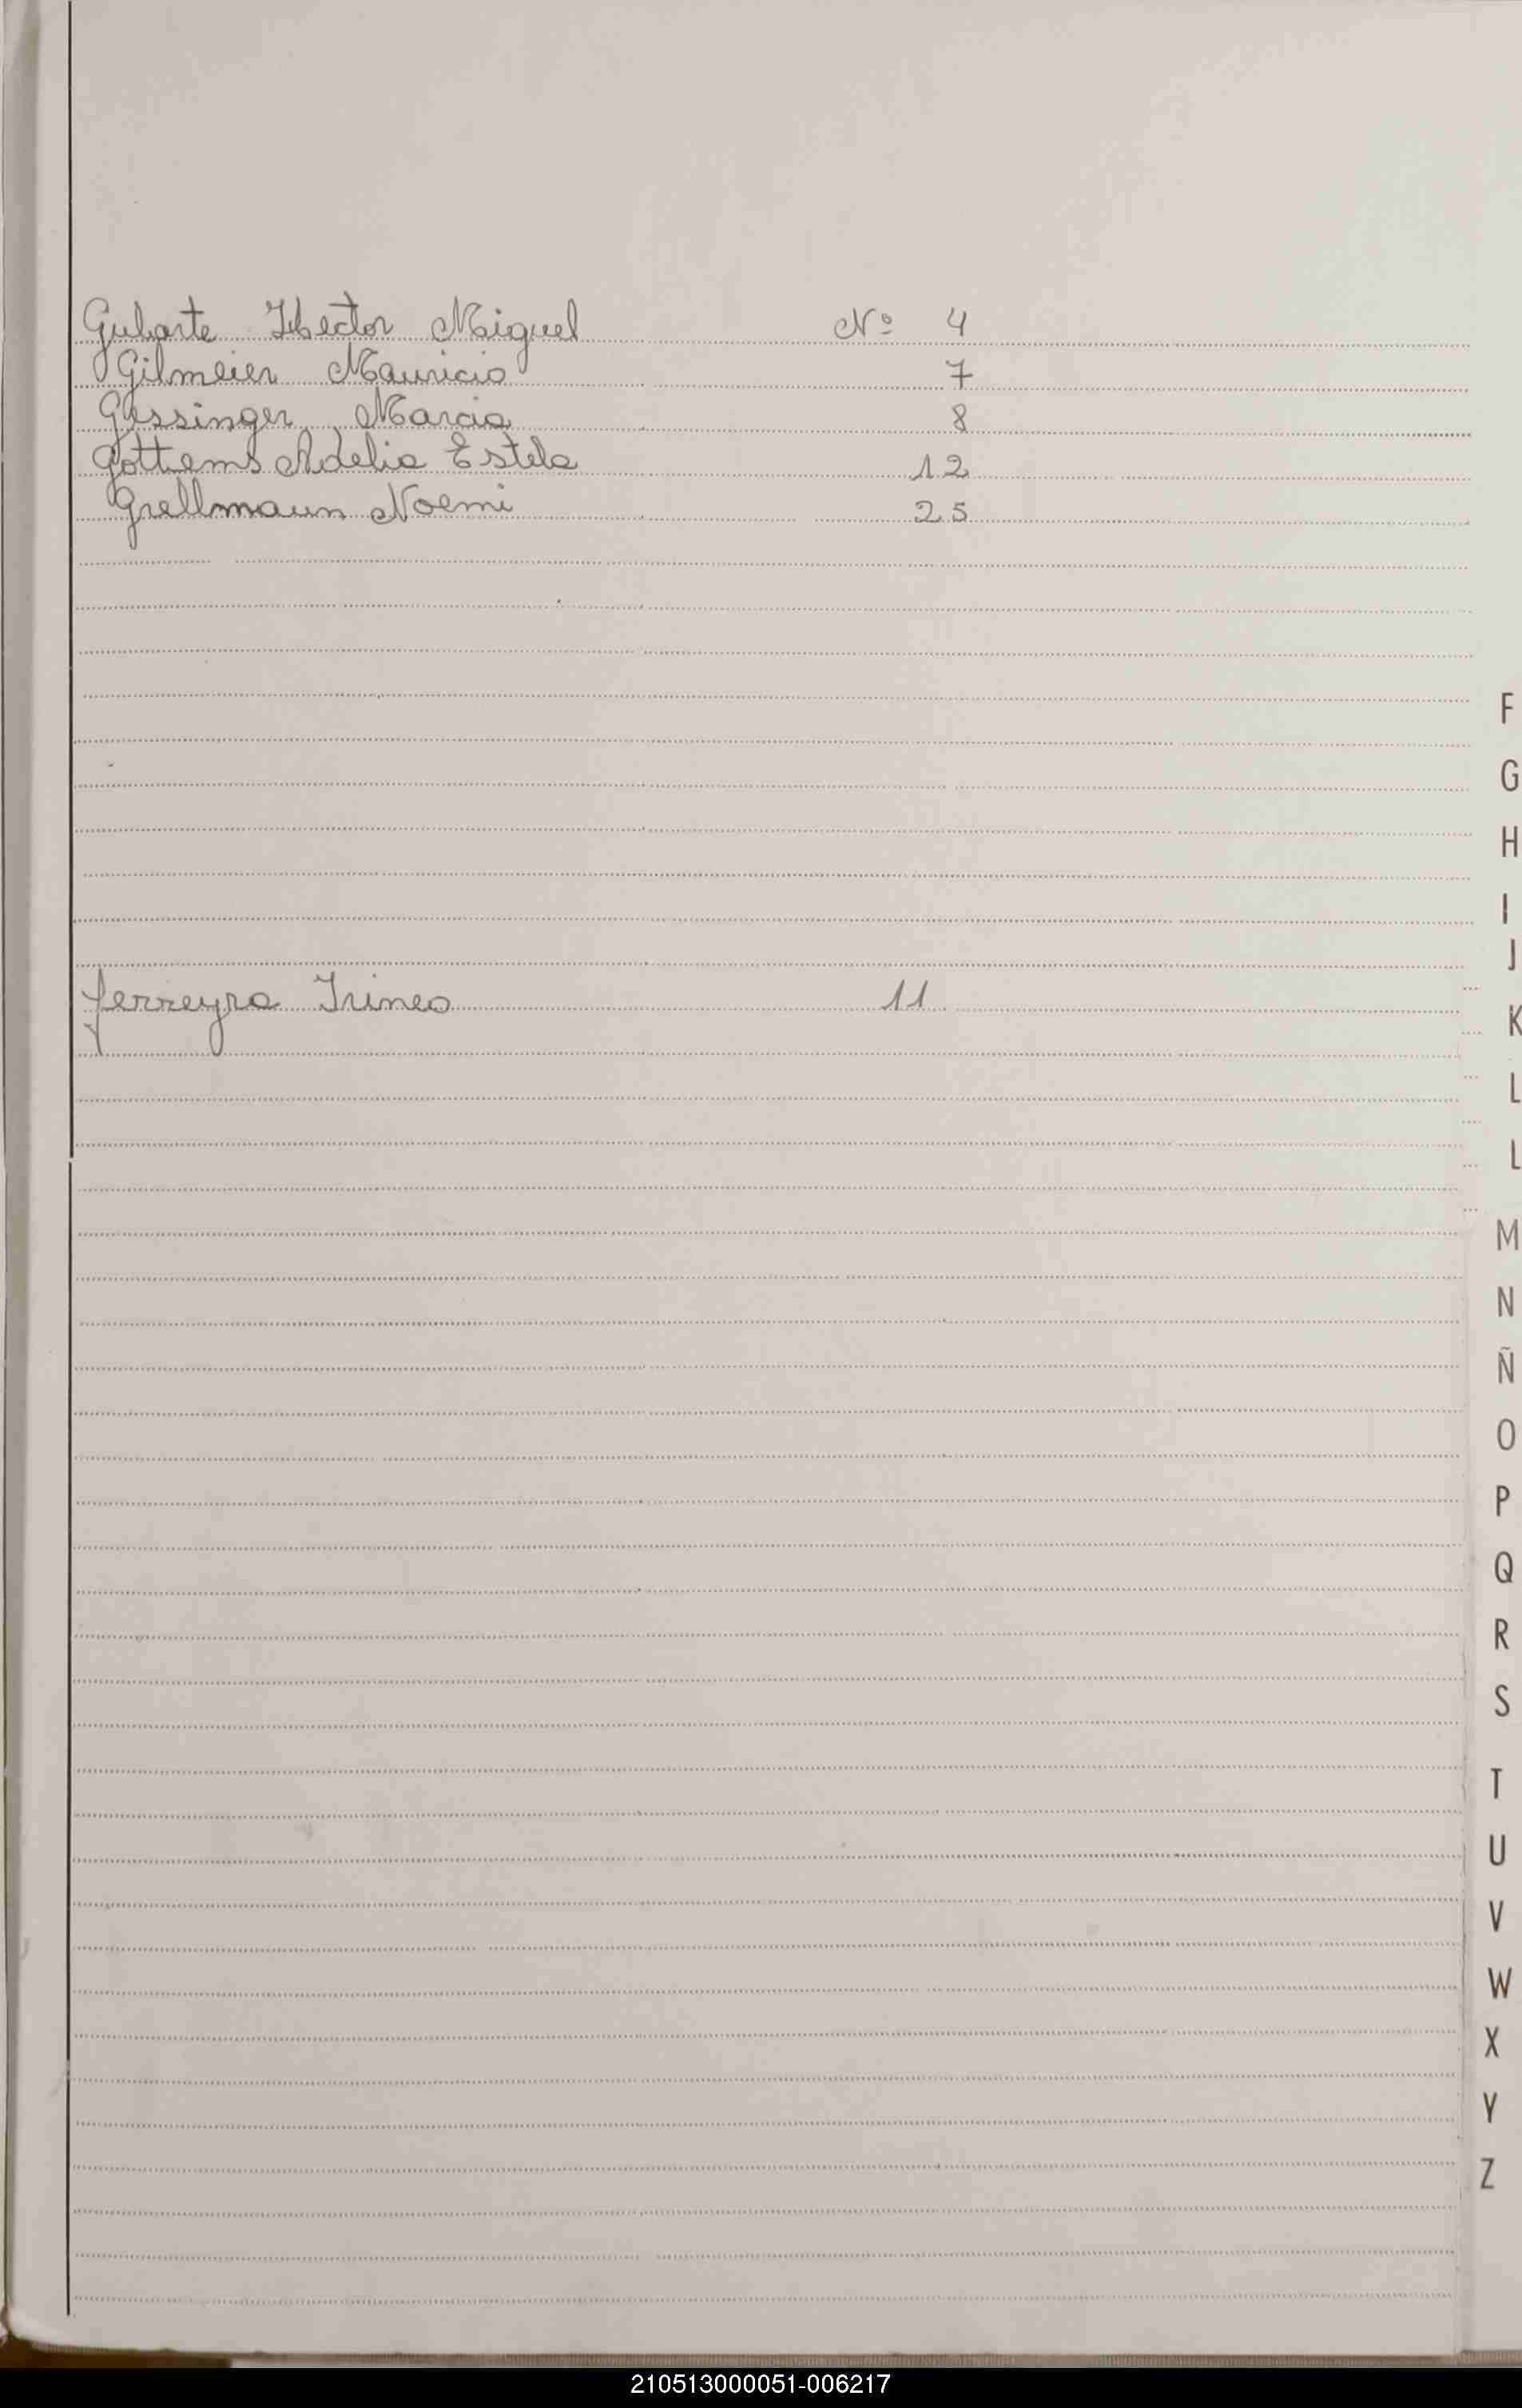 Gubarte Hector Miguel Nº 4
Gilmeier Mauricio 7
Gessinger Marcia 8
Gottems Adelia Estela 12
Grellmaun Noemi 25
ferreyra Irineo 11
F
G
H
I
J
K
L
L
M
N
Ñ
O
P
Q
R
S
T
U
V
W
X
Y
Z
210513000051-006217